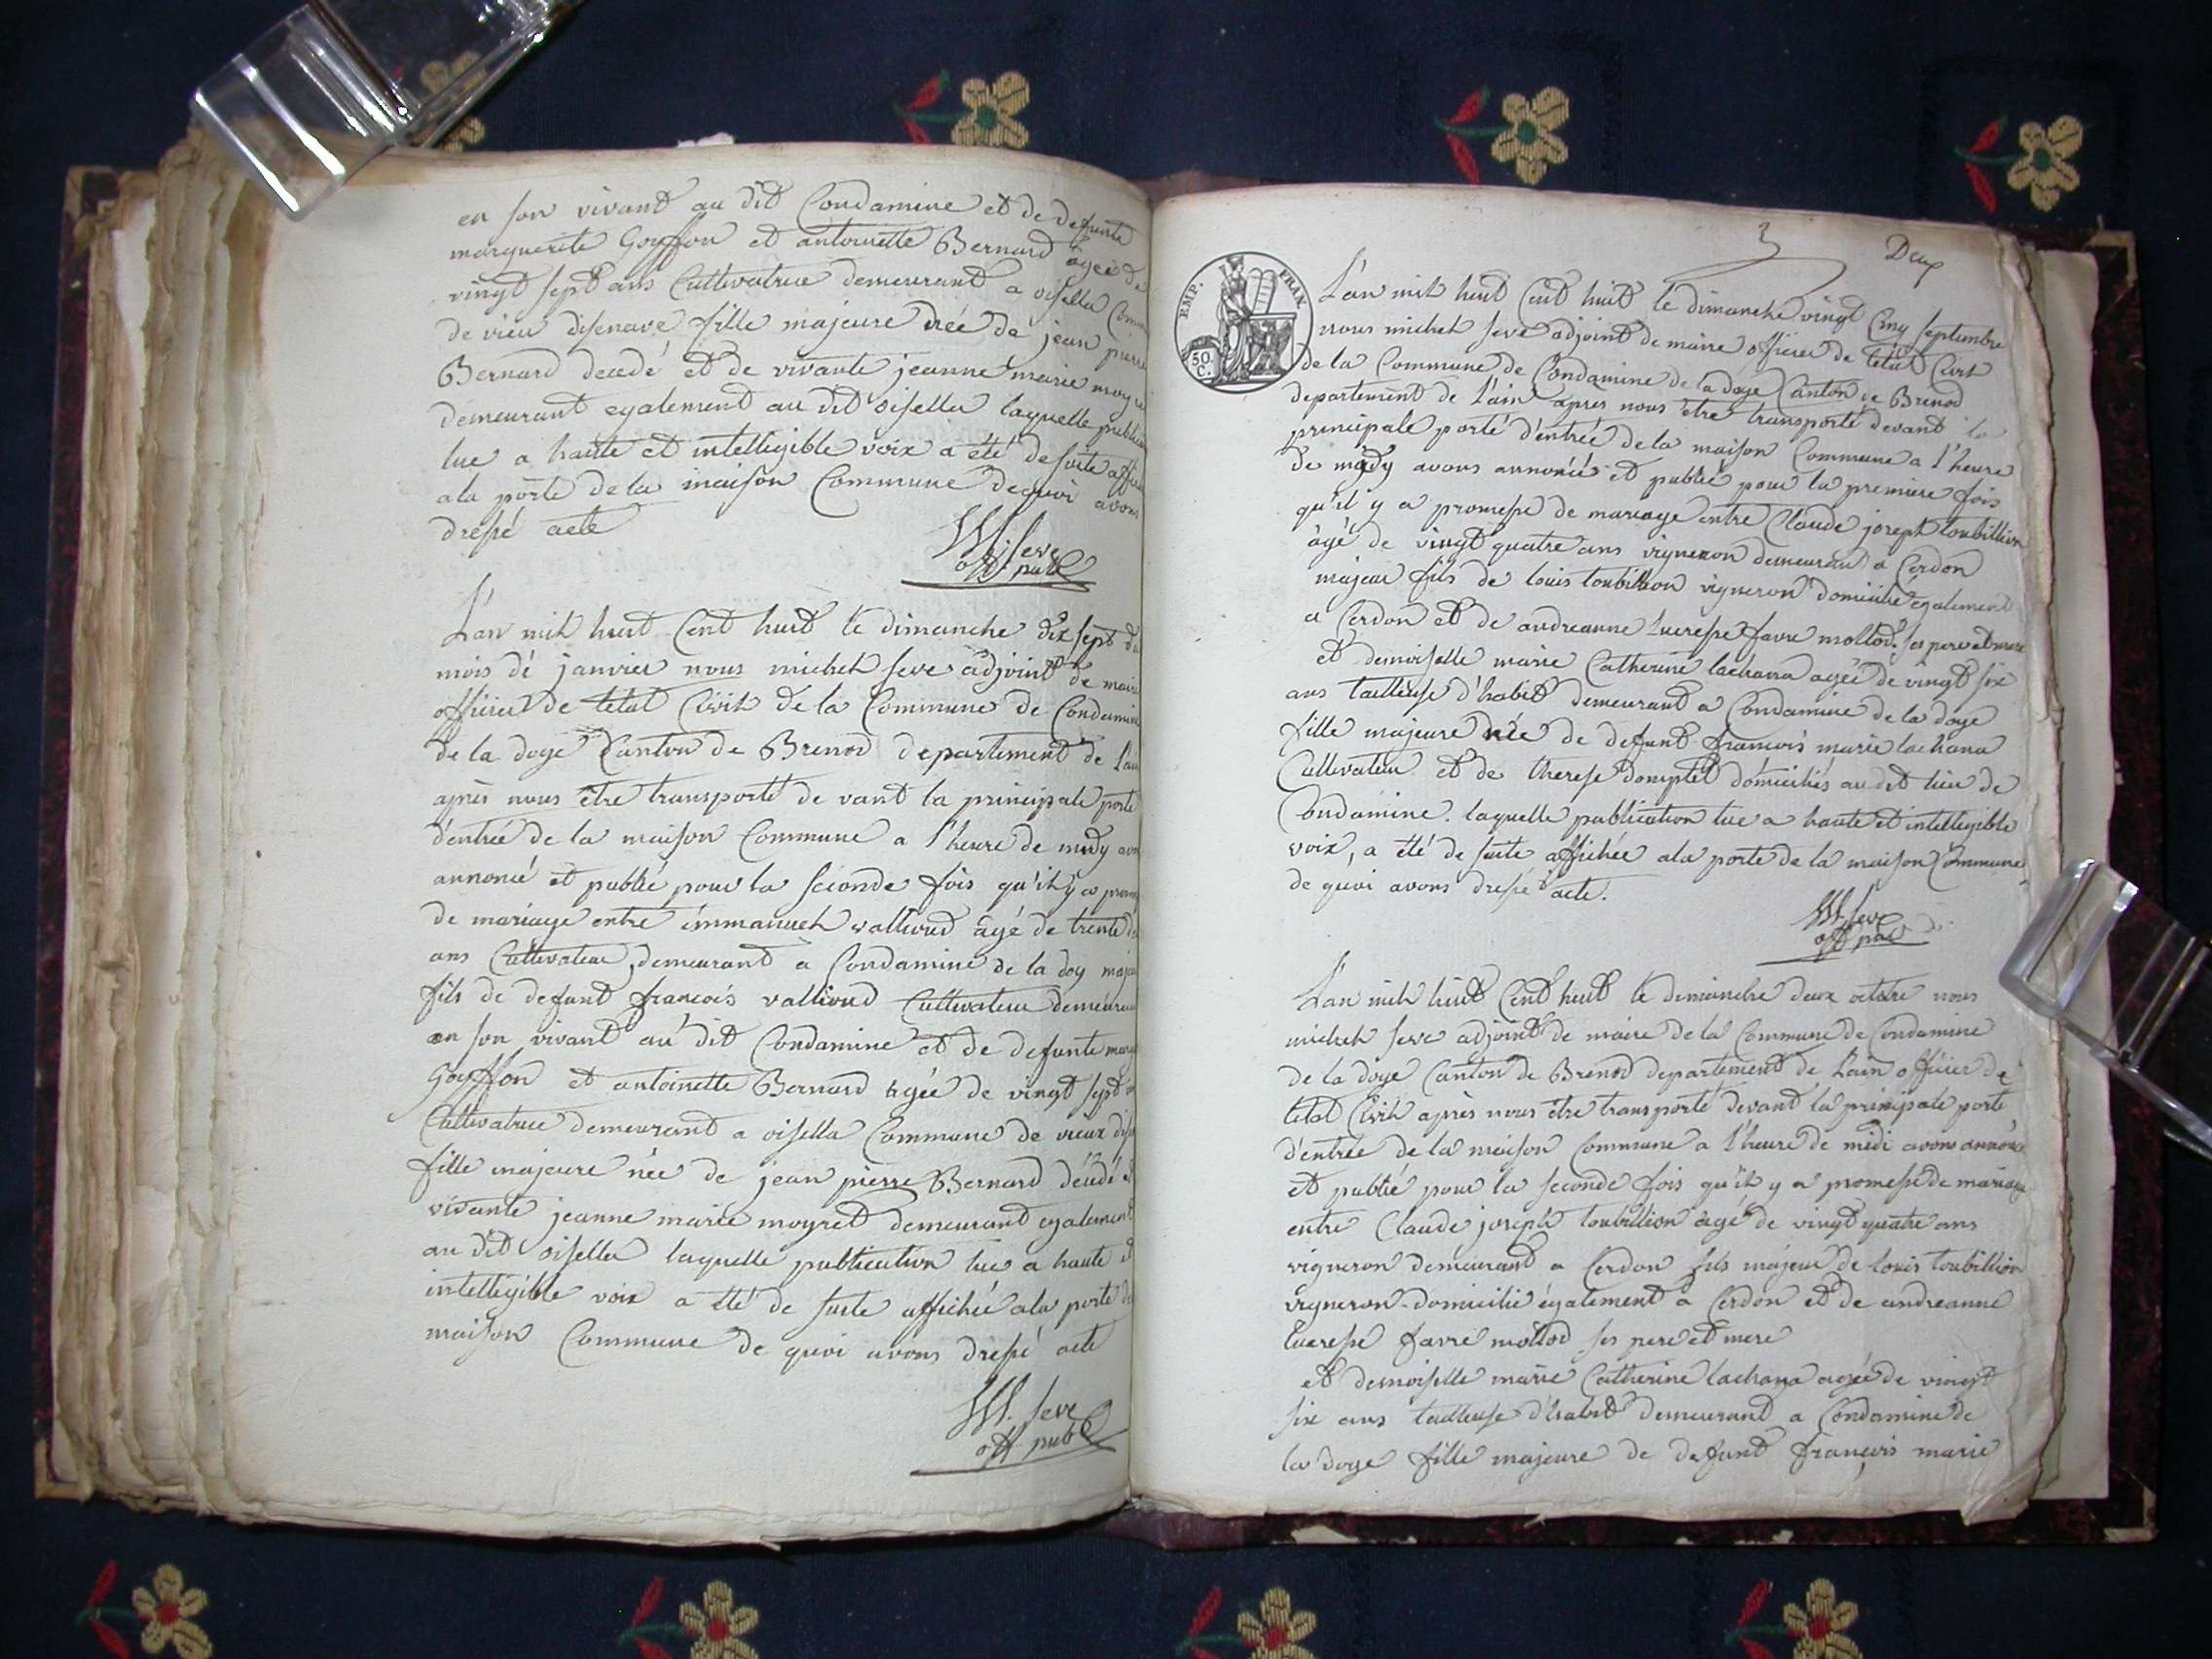 en son vivant au dit Condamine et de defunte
marguerite Gouffon et antoinette Bernard agée de
vingt sept ans Cultivatrice demeurant a oisella
de vieu disenave fille majeure née de jean pierre
Bernard decedé et de vivante jeanne marie
demeurant egalement au dit oisella laquelle
lue a haute et intelligible voix a été de suite
a la porte de la maison Commune de quoi avons
dressé acte
M. seve
off. publ
L'an mil huit Cent huit le dimanche dix sept du
mois dé janvier nous michel seve adjoint de maire
officier de letat Civil de la Commune de
de la doye Canton de Brenod departement de
après nous être transporté de vant la principale porte
d'entrée de la maison Commune a l'heure de midy
annoncé et publié pour la seconde fois qu'il y a
de mariage entre émmanuel vallioud âgé de trente
ans Cultivateur demeurant a Condamine de la doy
fils de defunt francois vallioud Cultivateur
en son vivant au dit Condamine et de defunte
Gouffon et antoinette Bernard agée de vingt sept
Cultivatrice demeurant a oisella Commune de vieux
fille majeure née de jean pierre Bernard décédé
vivante jeanne marie moyret demeurant egalement
au dit oisella laquelle publication lue a haute et
intelligible voix a été de suite affichée a la porte de
maison Commune de quoi avons dressé acte
M. seve
off publ
3 Deux
EMP. FRAN.
50 C.
L'an mil huit Cent huit le dimanche vingt Cinq septembre
nous michel seve adjoint de maire officier de létat Civil
de la Commune de Condamine de la doye Canton de Brenod
departement de l'ain apres nous être transporté devant la
principale porte d'entrée de la maison Commune a l'heure
de midy avons annoncé et publié pour la premiere fois
qu'il y a promesse de mariage entre Claude joseph toubillion
âgé de vingt quatre ans vigneron demeurant a Cerdon
majeur fils de louis toubillion vigneron domicilié également
a Cerdon et de andreanne lucresse favre mollod ses pere et mere
et demoiselle marie Catherine lachana agée de vingt six
ans tailleuse d'habit demeurant a Condamine de la doye
fille majeure née de defunt francois marie lachana
Cultivateur et de therese domptet domiciliés au dit lieu de
Condamine. laquelle publication lue a haute et intelligible
voix, a été de suite affichée a la porte de la maison Commune,
de quoi avons dressé acte.
M. seve
off
L'an mil huit Cent huit le dimanche deux octobre nous
michel seve adjoint de maire de la Commune de Condamine
de la doye Canton de Brenod departement de Lain officier de
letat Civil après nous être transporté devant la principale porte
d'entrée de la maison Commune a l'heure de midi avons annoncé
et publié pour la seconde fois qu'il y a promesse de mariage
entre Claude joseph toubillion âgé de vingt quatre ans
vigneron demeurant a Cerdon fils majeur de louis toubillion
vigneron domicilié également a Cerdon et de andreanne
lucresse favre mollod ses pere et mere
et demoiselle marie Catherine lachana agée de vingt
six ans tailleuse d'habit demeurant a Condamine de
la doye fille majeure de defunt françois marie